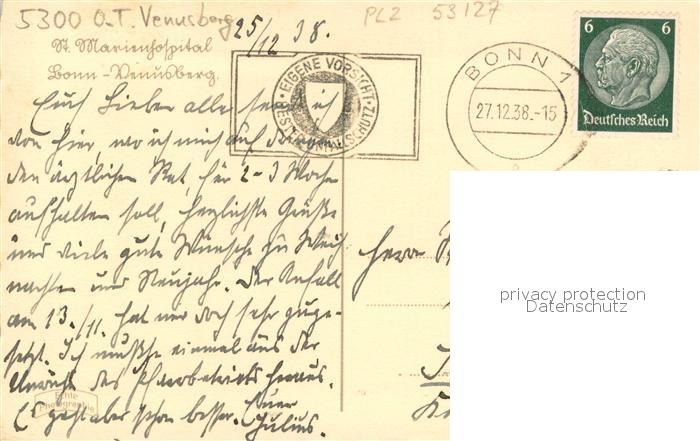 5300 O.T. Venusberg
PLZ 53127
25/12 38.
St. Marienhospital
Bonn-Venusberg.
EIGENE VORSICHT
BESTER UNFALLSCHUTZ
BONN 1
27.12.38.-15
6 6
Deutsches Reich
Euch Lieben allen sende ich
von hier, wo ich mich auf
den ärztlichen Rat, für 2-3 Wochen
aufhalten soll, herzlichste Grüße
und viele gute Wünsche zu Weih
nachten und Neujahr. Der Unfall
am 13./11. hat mir doch sehr zuge-
setzt. Ich mußte einmal aus der
Unruhe des Pfarrbetriebs heraus.
Es geht aber schon besser. Euer
Julius.
Herrn
privacy protection
Datenschutz
Echte
Photographie